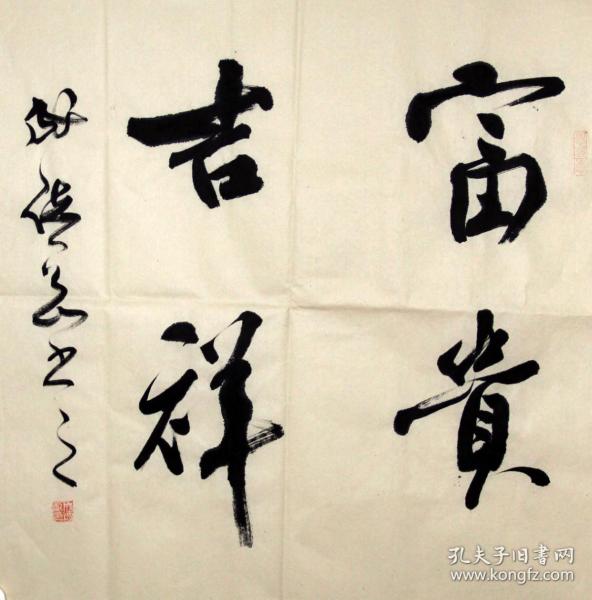 富貴
吉祥
書之
孔夫子旧书网
www.kongfz.com